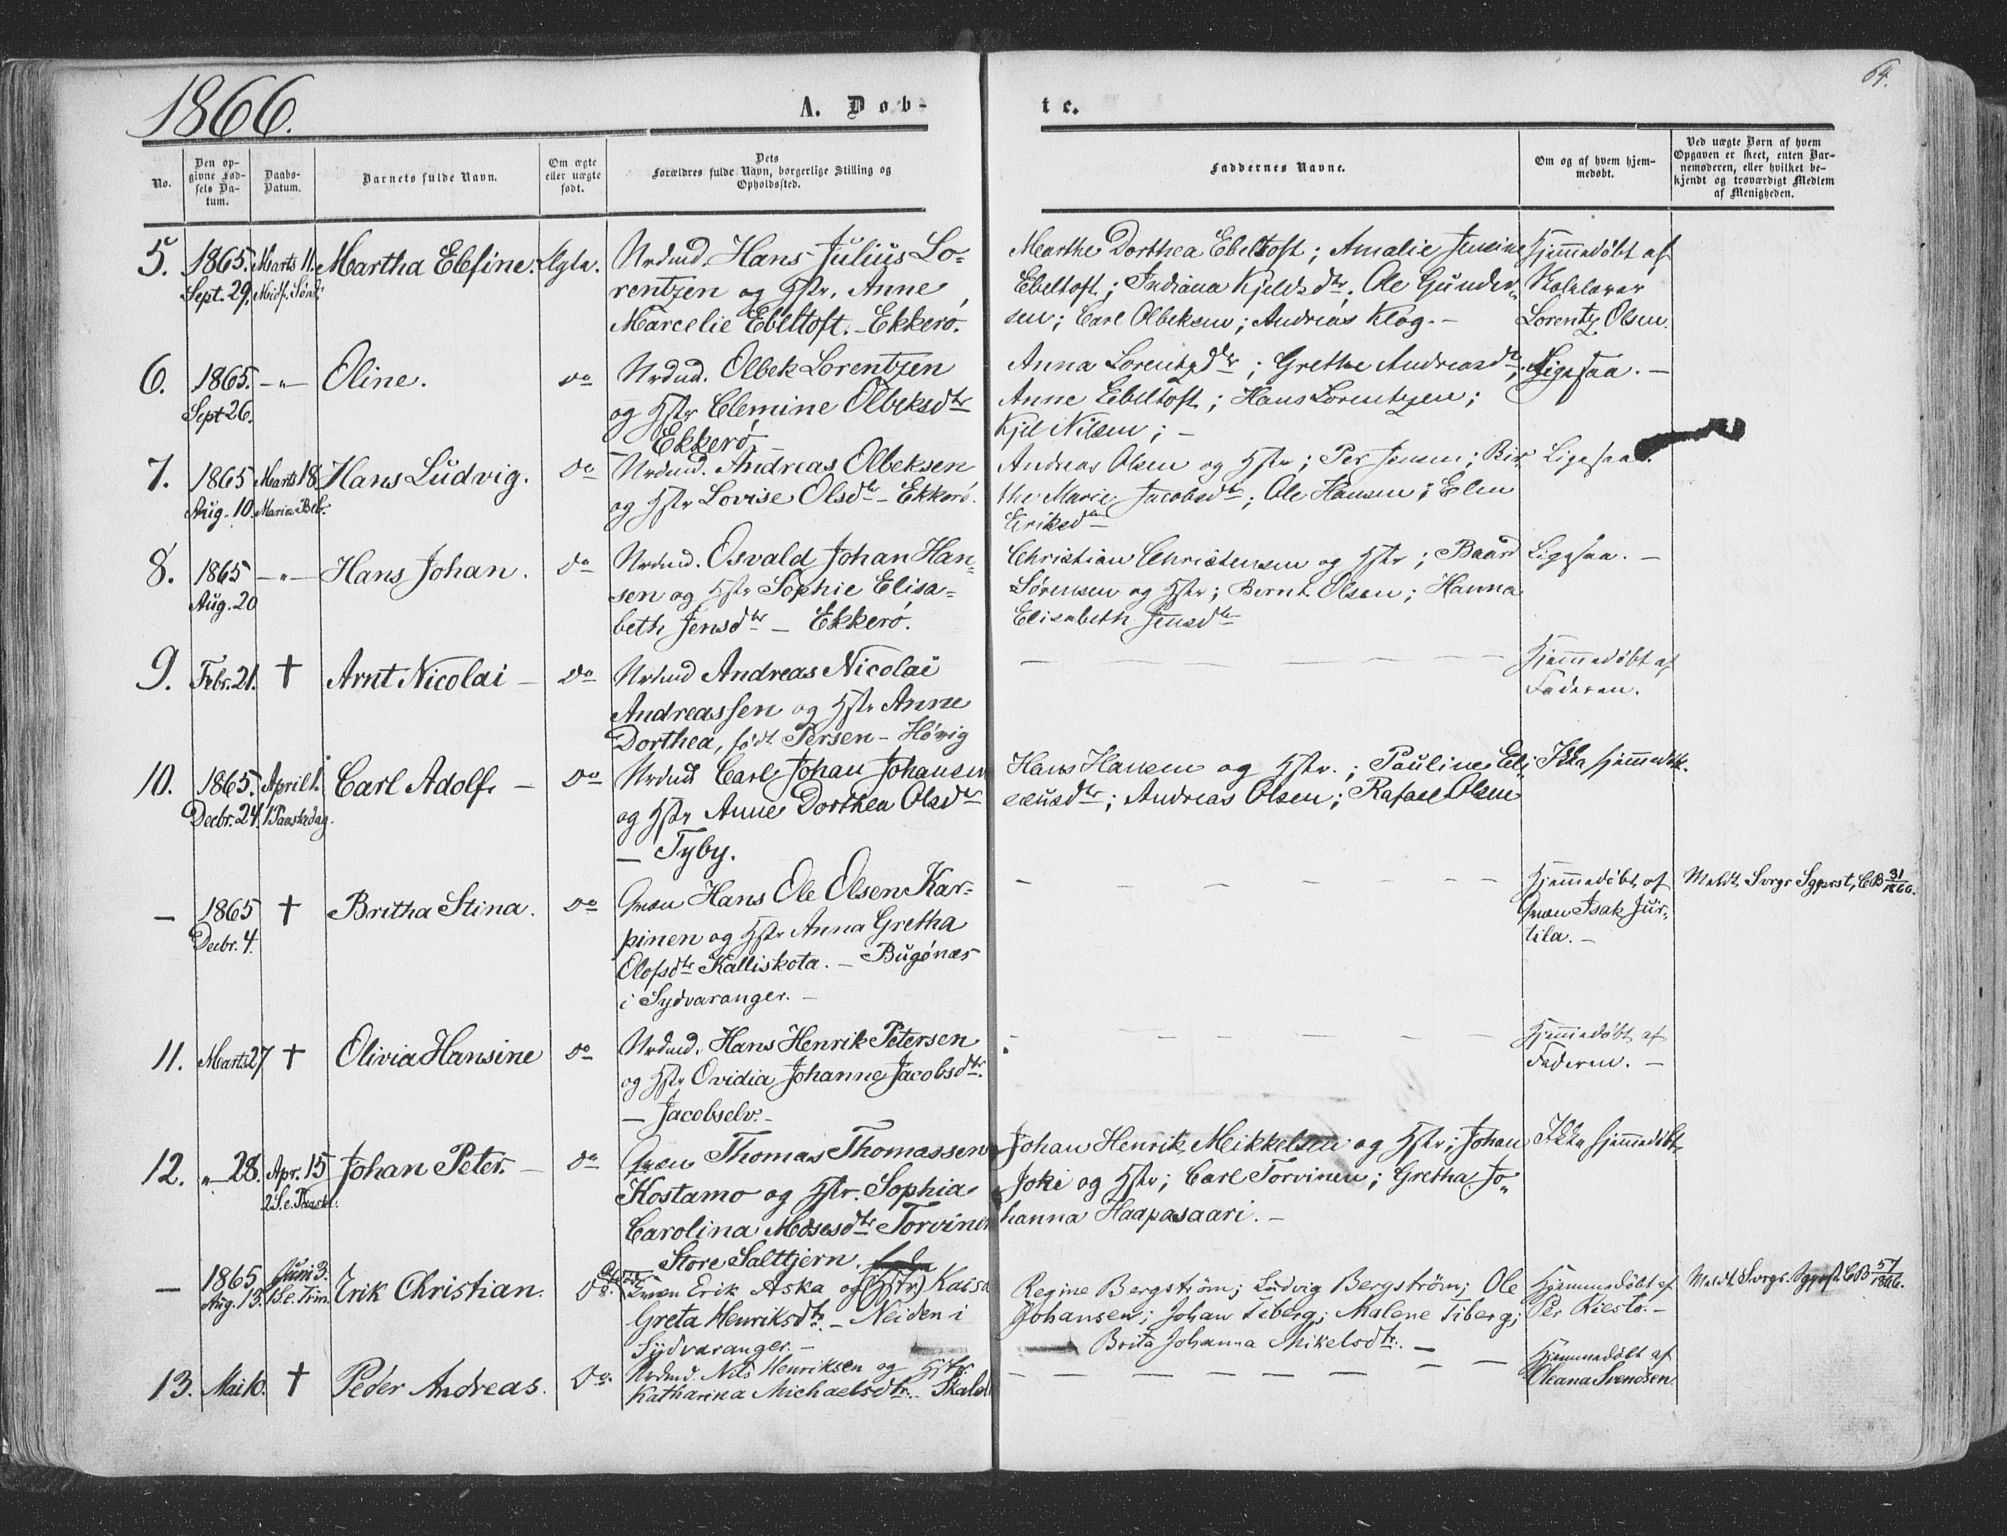 1866.
A. Døb-
te.
64.
No.
Den opgivne Fødsels Datum.
Daabs-Datum.
Barnets fulde Navn.
Om ægte eller uægte født.
Dets Forældres fulde Navn, borgerlige Stilling og Opholdssted.
Faddernes Navne.
Om og af hvem hjemmedøbt.
Ved uægte Børn af hvem Opgaven er skeet, enten Barnemoderen, eller hvilket bekjendt og troværdigt Medlem af Menigheden.
5. 1865. Marts 11. Martha Elefine. Ægte. Nrdmd. Hans Julius Lo-
Sept. 29. Midf. Sønd. rentzen og Hstr. Anne
Marcelie Ebeltoft. - Ekkerø.
Marthe Dorthea Ebeltoft; Amalie Jensine
Ebeltoft; Indiana Kjeldsdtr; Ole Gunder-
sen; Carl Olbeksen; Andreas Klog. -
Hjemmedøbt af
Skolelærer
Lorentz Olsen.
6. 1865. -"- Oline. do Nrdmd. Olbek Lorentzen
Sept 26. og Hstr Clemine Olbeksdtr
Ekkerø -
Anna Lorentzdtr; Grethe Andreasdtr;
Anne Ebeltoft; Hans Lorentzen;
Kjel Nilsen; -
Ligesaa. -
7. 1865 Marts 18 Hans Ludvig. do Nrdmd. Andreas Olbeksen
Aug. 10. Mariæ Beb. og Hstr Lovise Olsdtr - Ekkerø.
Andreas Olsen og Hstr; Per Jensen; Bir-
the Marie Jacobsdtr; Ole Hansen; Elen
Eriksdtr
Ligesaa.
8. 1865 -"- Hans Johan. do Nrdmd. Osvald Johan Han-
Aug. 20 sen og Hstr Sophie Elisa-
beth Jensdtr - Ekkerø.
Christian Christensen og Hstr; Baard
Sørensen og Hstr; Bernt Olsen; Hanna
Elisabeth Jensdtr
Ligesaa. -
9. Febr. 21. † Arnt Nicolai - do Nrdmd Andreas Nicolai
Andreassen og Hstr Anne
Dorthea, født Persen - Høvig
Hjemmedøbt af
Faderen.
10. 1865. April 1. Carl Adolf. - do Nrdmd Carl Johan Johansen
Decbr. 24. 1 Paaskedag. og Hstr Anne Dorthea Olsdtr
- Tyby.
Hans Hansen og Hstr.; Pauline El-
eusdtr; Andreas Olsen; Rafael Olsen
Ikke hjemmedøbt.
- 1865 † Britha Stina. do Qvæn Hans Ole Olsen Kar-
Decbr. 4. pinen og Hstr Anna Gretha
Olofsdtr Kalliskota. - Bugønæs
i Sydvaranger. -
Hjemmedøbt af
Qvæn Isak Jur-
tila. -
Meldt Svrgr Sgprst. CB 31/1866.
11. Marts 27 † Olivia Hansine do Nrdmd. Hans Henrik Petersen
og Hstr Ovidia Johanne Jacobsdtr.
- Jacobselv. -
Hjemmedøbt af
Faderen. -
12. "- 28. Apr. 15 Johan Peter. - do Qvæn Thomas Thomassen
2 S. e. Paaske. Kostamo og Hstr. Sophia
Carolina Mosesdtr Torvinen
Store Saltfjern.
Johan Henrik Mikkelsen og Hstr; Johan
Joki og Hstr; Carl Torvinen; Gretha Jo-
hanna Haapasaari. -
Ikke hjemmedøbt
- 1865 Juni 3. Erik Christian. do Qvæn Erik Aska og (Hstr) Kaisa
Aug. 13. 1 S. e. Trin. Greta Henriksdtr. - Neiden i
Sydvaranger. -
Regine Bergstrøm; Ludvig Bergstrøm; Ole
Johansen; Johan Tiberg; Malene Tiberg;
Brita Johanna Mikelsdtr. -
Hjemmedøbt af
Per Kiesto. -
Meldt Svrgr. Sgprst. CB 57/1866.
13. Mai 10. † Peder Andreas. do. Nrdmd. Nils Henriksen og Hstr
Katharina Michaelsdtr.
Hjemmedøbt af
Oleana Svendsen.